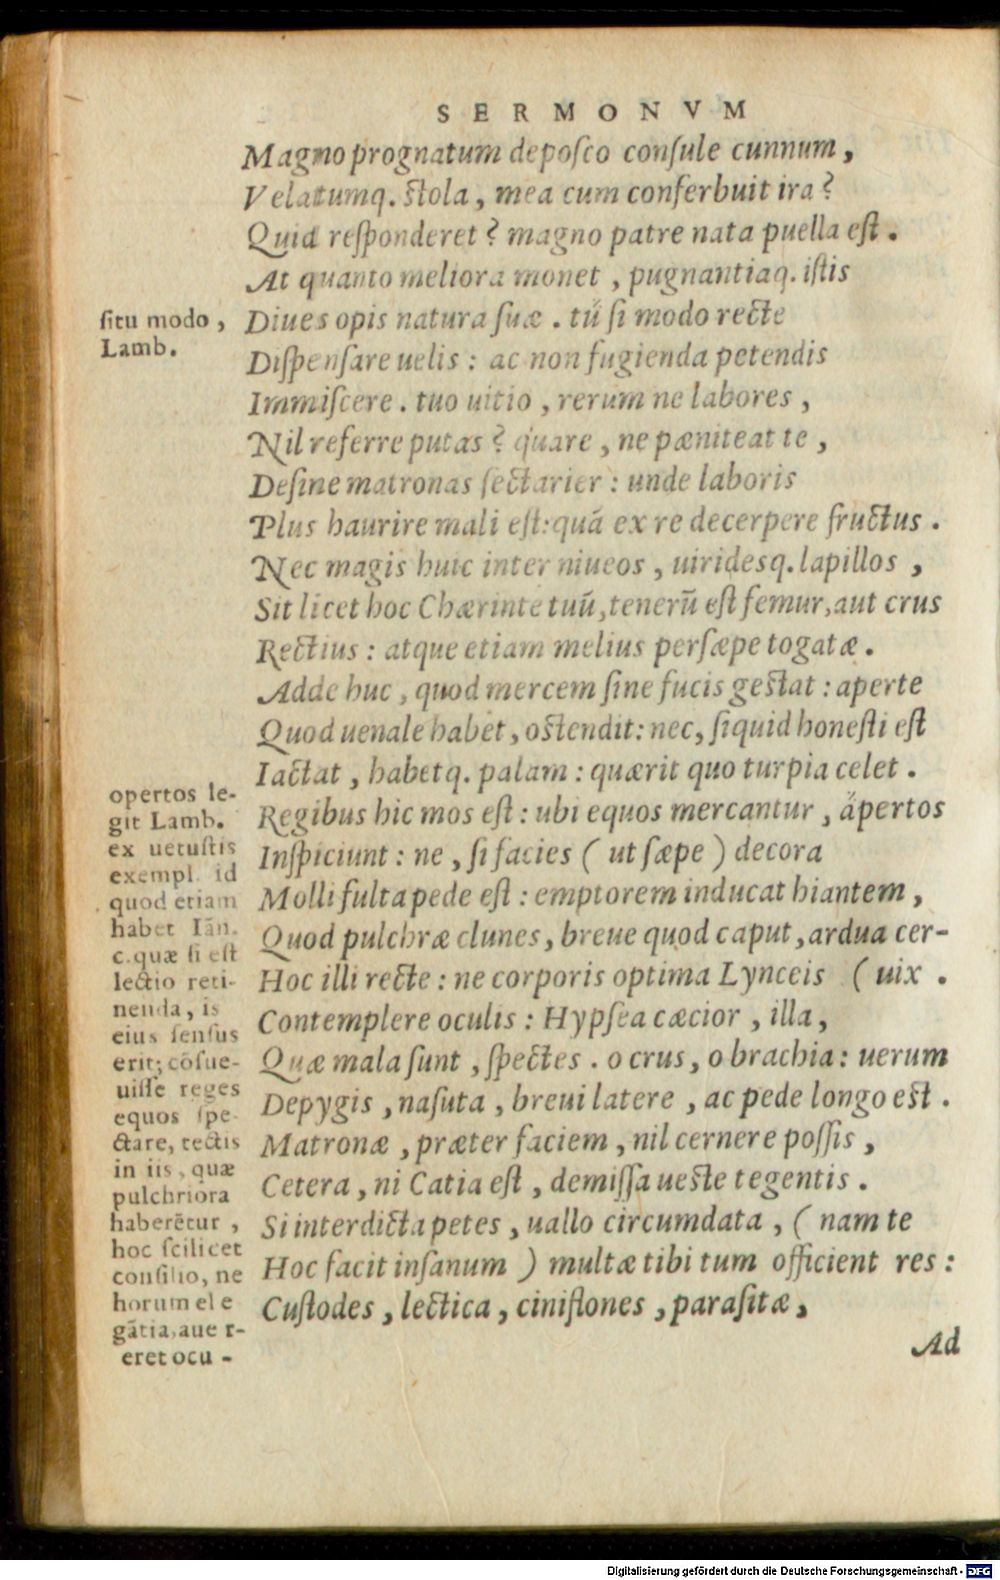 SERMONVM
Magno prognatum deposco consule cunnum,
Velatumq. stola, mea cum conferbuit ira?
Quid responderet? magno patre nata puella est.
At quanto meliora monet, pugnantiaq. istis
Diues opis natura suæ. tũ si modo recte
Dispensare uelis: ac non fugienda petendis
Immiscere. tuo uitio, rerum ne labores,
Nil referre putas? quare, ne pæniteat te,
Desine matronas sectarier: unde laboris
Plus haurire mali est: quã ex re decerpere fructus.
Nec magis huic inter niueos, uiridesq. lapillos,
Sit licet hoc Chærinte tuũ, tenerũ est femur, aut crus
Rectius: atque etiam melius persæpe togatæ.
Adde huc, quod mercem sine fucis gestat: aperte
Quod uenale habet, ostendit: nec, siquid honesti est
Iactat, habetq. palam: quærit quo turpia celet.
Regibus hic mos est: ubi equos mercantur, ápertos
Inspiciunt: ne, si facies (ut sæpe) decora
Molli fulta pede est: emptorem inducat hiantem,
Quod pulchræ clunes, breue quod caput, ardua cer-
Hoc illi recte: ne corporis optima Lynceis (uix.
Contemplere oculis: Hypsea cæcior, illa,
Quæ mala sunt, spectes. o crus, o brachia: uerum
Depygis, nasuta, breui latere, ac pede longo est.
Matronæ, præter faciem, nil cernere possis,
Cetera, ni Catia est, demissa ueste tegentis.
Si interdicta petes, uallo circumdata, (nam te
Hoc facit insanum) multæ tibi tum officient res:
Custodes, lectica, ciniflones, parasitæ,
Ad
situ modo,
Lamb.
opertos le-
git Lamb.
ex uetustis
exempl. id
quod etiam
habet Iãn.
c. quæ si est
lectio reti-
nenda, is
eius sensus
erit; cõsue-
uisse reges
equos spe-
ctare, tectis
in iis, quæ
pulchriora
haberẽtur,
hoc scilicet
consilio, ne
horum ele
gãtia, auer-
eret ocu-
Digitalisierung gefördert durch die Deutsche Forschungsgemeinschaft - DFG